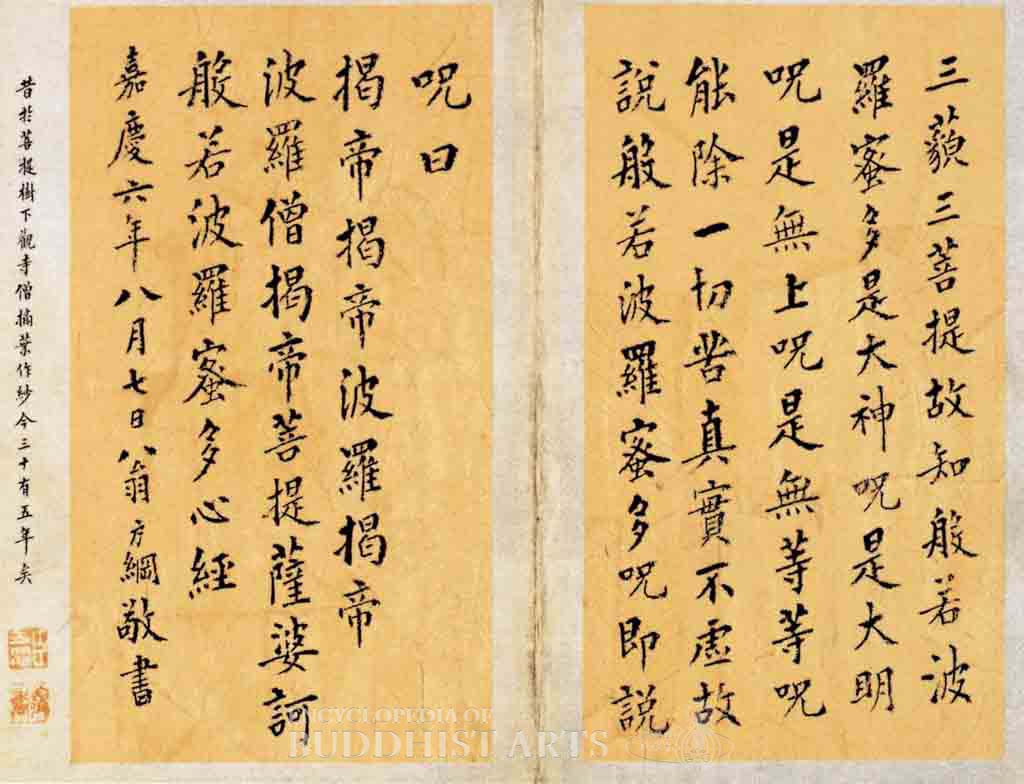 三藐三菩提故知般若波
羅蜜多是大神呪是大明
呪是無上呪是無等等呪
能除一切苦真實不虛故
說般若波羅蜜多呪即說
呪曰
揭帝揭帝波羅揭帝
波羅僧揭帝菩提薩婆訶
般若波羅蜜多心經
嘉慶六年八月七日翁方綱敬書
昔於菩提樹下觀寺僧摘葉作紗今三十有五年矣
CYCLOPEDIA OF
BUDDHIST ARTS